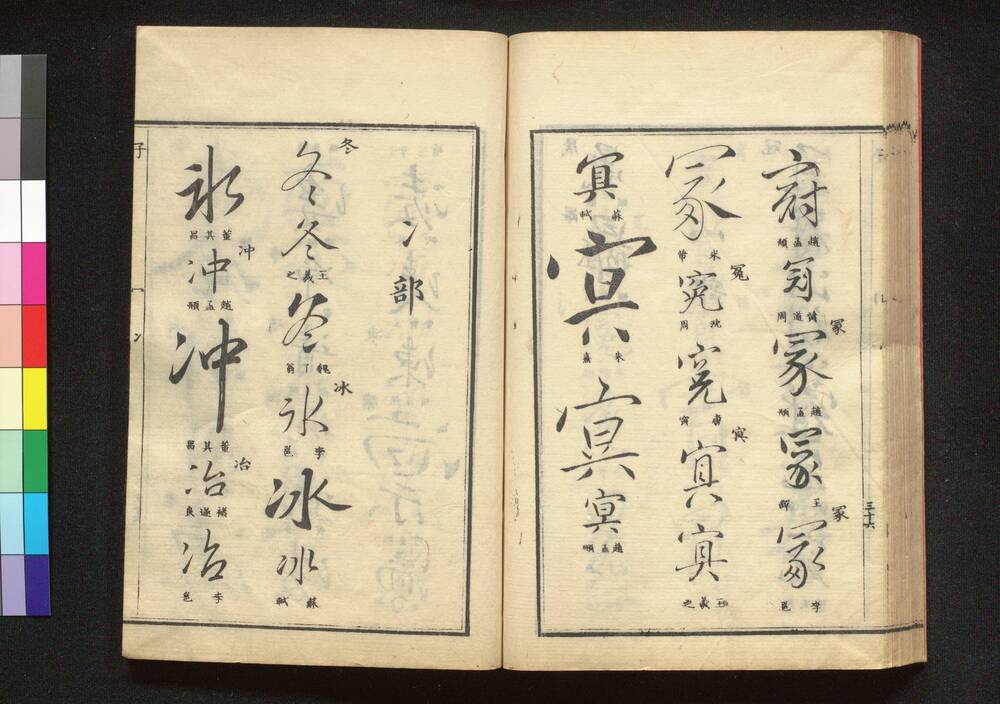 冠
趙孟頫
冠
周道偉
冢
冢
趙孟頫
冢
王鐸
冢
冢
李邕
冢
米芾
冤
冤
沈周
冤
唐寅
冥
冥
冥
王羲之
冥
蘇軾
冥
米嘉
冥
冥
趙孟頫
三十六
冫部
冬
冬
冬
王羲之
冬
魏了翁
冰
冰
李邕
冰
冰
蘇軾
冰
董其昌
冲
冲
趙孟頫
冲
董其昌
冶
冶
褚遂良
冶
李邕
子
冫